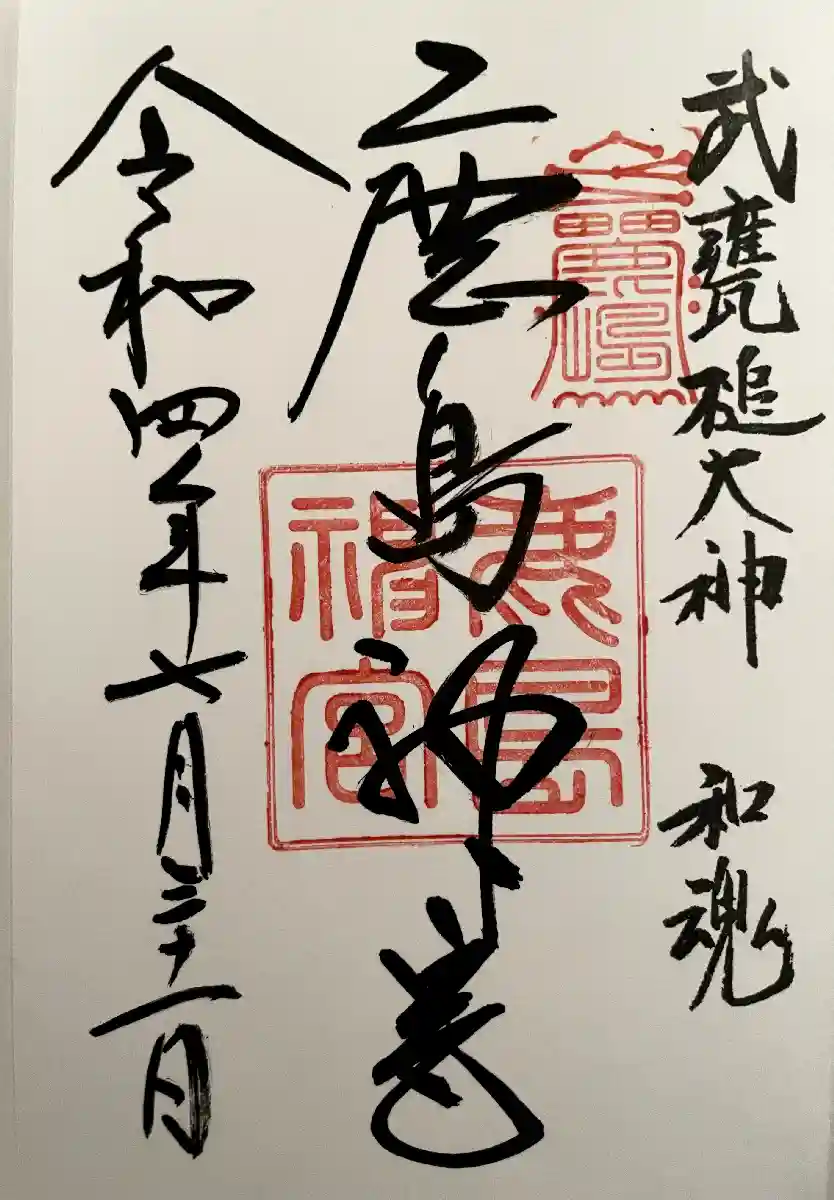 武甕槌大神 和魂
鹿島神宮
令和四年七月三十一日
鹿島
神宮